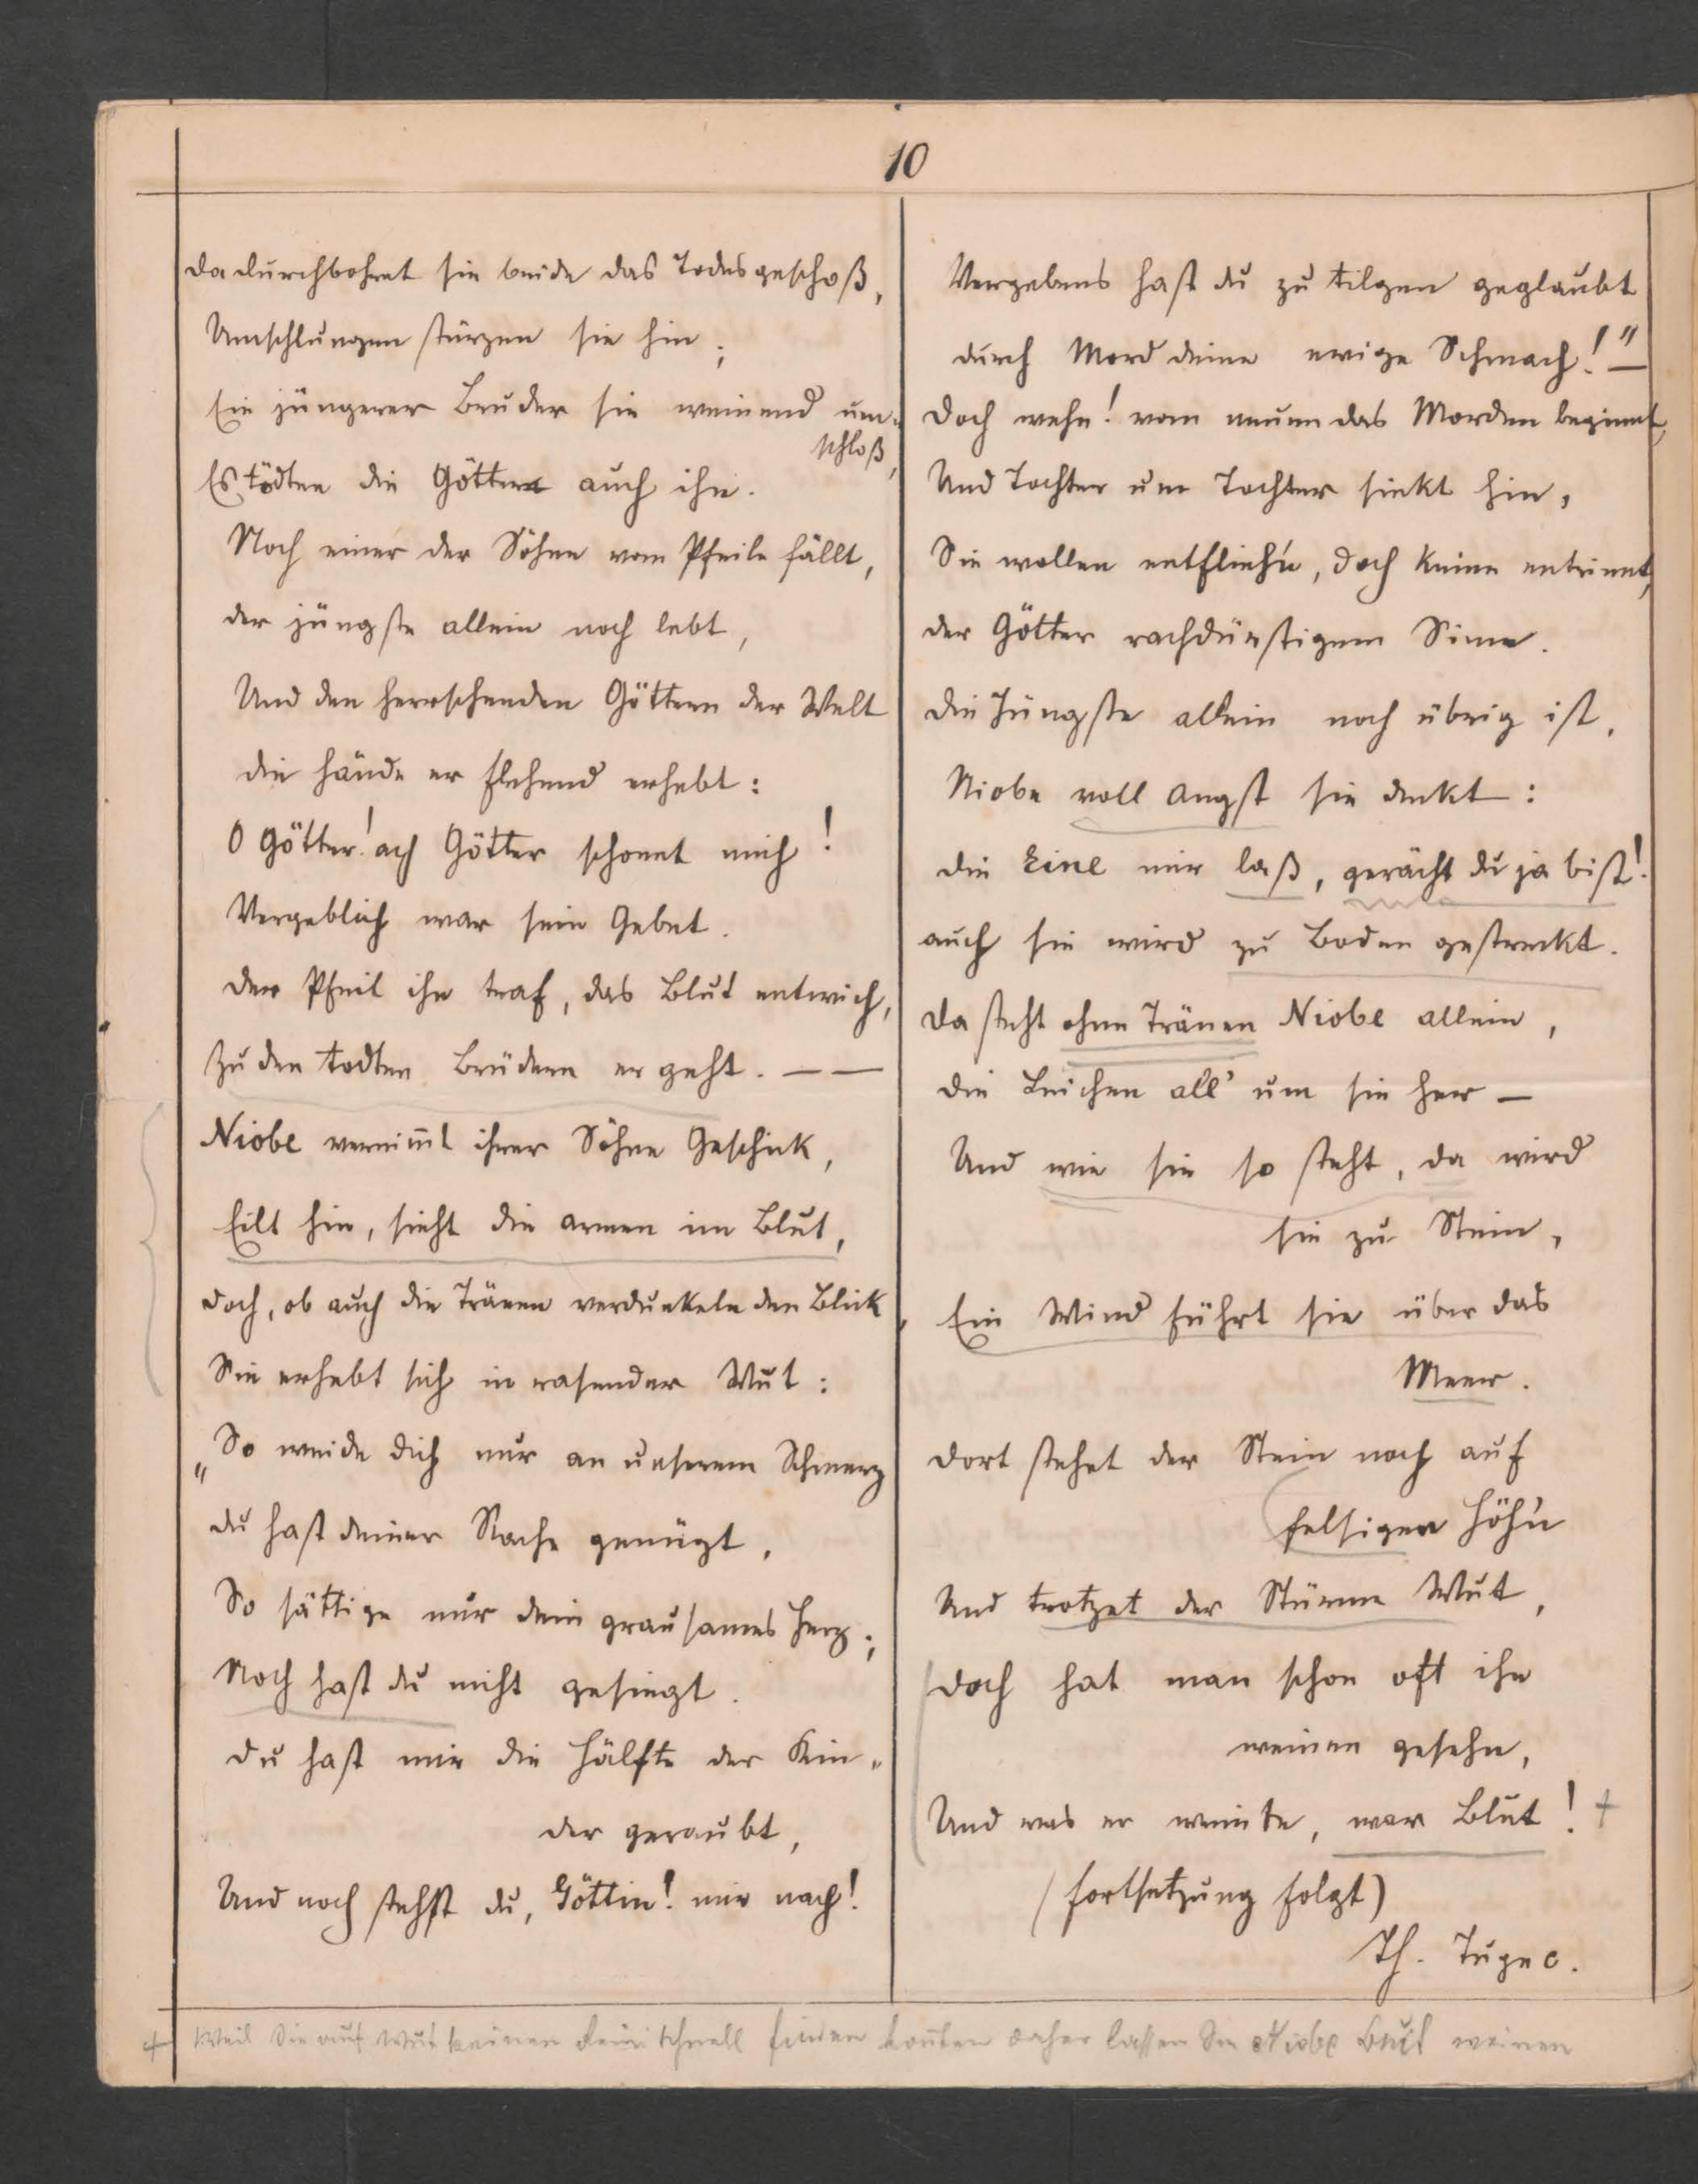 10
Da durchbohret sie beide das Todesgeschoß,
Umschlungen stürzen sie hin;
Ein jüngerer Bruder sie weinend um-
schloß,
Es tödten die Götter auch ihn.
Noch einer der Söhne vom Pfeile fällt,
der jüngste allein noch lebt,
Und den herrschenden Göttern der Welt
die Hände er flehend erhebt:
O Götter! ach Götter schonet mich!
Vergeblich war sein Gebet.
Der Pfeil ihn traf, das Blut entwich,
Zu den todten Brüdern er geht. — —
Niobe vernim̄t ihrer Söhne Geschick,
Eilt hin, sieht die armen im Blut,
Doch, ob auch die Tränen verdunkeln den Blick,
Sie erhebt sich in rasender Wut:
„So weide dich nur an unserem Schmerz
du hast deiner Rache genügt,
So sättige nur dein grausames Herz;
Noch hast du nicht gesiegt.
Du hast mir die Hälfte der Kin-
der geraubt,
Und noch stehst du, Göttin! mir nach!
Vergebens hast du zu tilgen geglaubt
durch Mord deine ewige Schmach!" —
Doch wehe! vom neuen das Morden beginnt,
Und Tochter um Tochter sinkt hin,
Sie wollen entflieh'n, doch keine entrinnt,
der Götter rachdürstigem Sinn.
Die Jüngste allein noch übrig ist,
Niobe voll Angst sie deckt:
Die Eine mir laß, gerächt du ja bist!
auch sie wird zu Boden gestreckt.
Da steht ohne Tränen Niobe allein,
die Leichen all' um sie her —
Und wie sie so steht, da wird
sie zu Stein,
Ein Wind führt sie über das
Meer.
Dort stehet der Stein noch auf
felsigen Höh'n
Und trotzet der Stürme Wut,
Doch hat man schon oft ihn
weinen gesehn,
Und was er weinte, war Blut! +
(Fortsetzung folgt)
Th. Tuzec.
+ Weil Sie auf Wut keinen Reim schnell finden kon̄ten daher lassen Sie Niobe Blut weinen